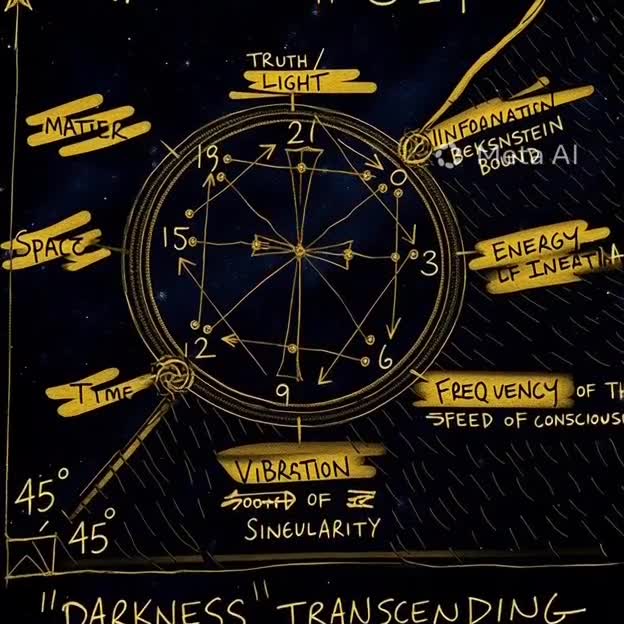 TRUTH/
LIGHT
MATTER
IINFOQNATION
BEKSNSTEIN
BOUND
Meta AI
21
19
0
SPACE
15
3
ENERGY
LF INEATIA
12
6
9
TYME
FREQVENCY OF TH
SFEED OF CONSCIOUS
VIBRSTION
OF
SINEULARITY
45°
45°
"DARKNESS" TRANSCENDING